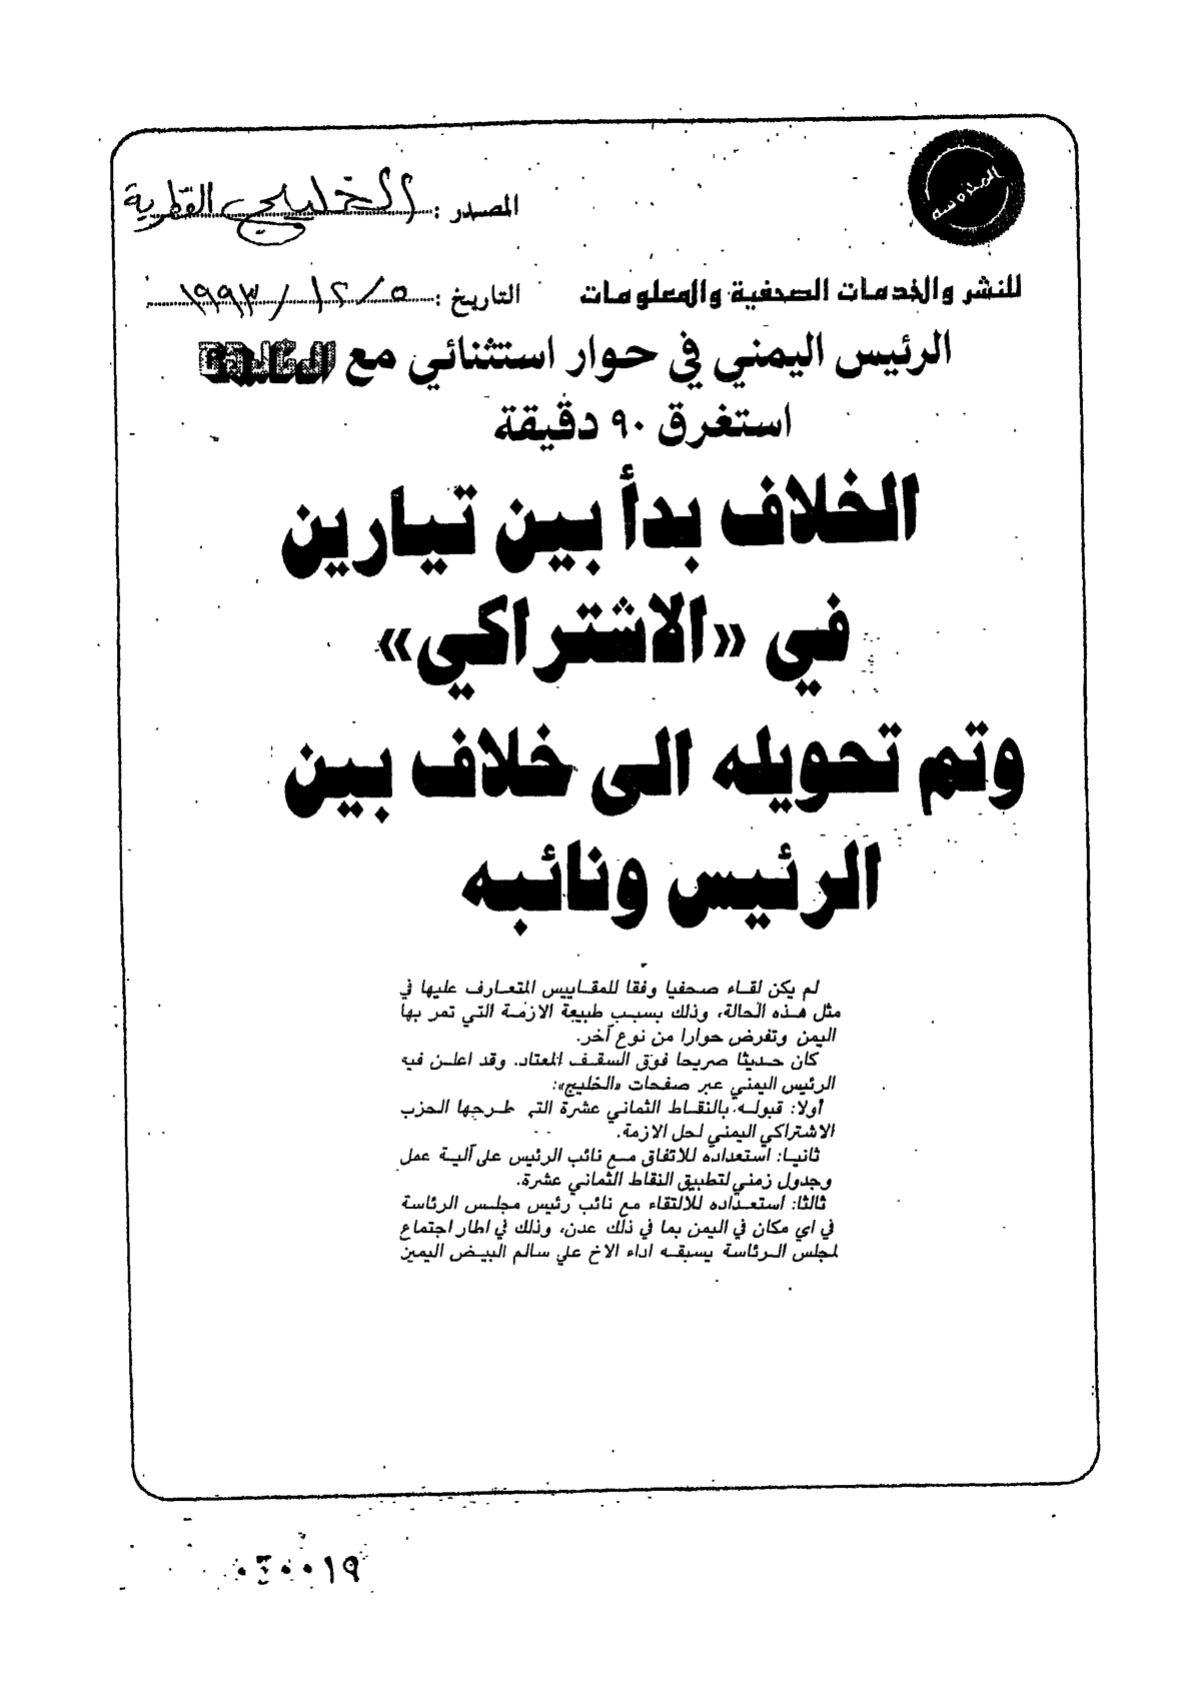 المصدر : الخليج القطرية
للنشر والخدمات الصحفية والمعلومات
التاريخ : ٥ / ١٢ / ١٩٩٣
الرئيس اليمني في حوار استثنائي مع
استغرق ٩٠ دقيقة
الخلاف بدأ بين تيارين
في «الاشتراكي»
وتم تحويله الى خلاف بين
الرئيس ونائبه
لم يكن لقاء صحفيا وفقا للمقاييس المتعارف عليها في
مثل هذه الحالة، وذلك بسبب طبيعة الازمة التي تمر بها
اليمن وتفرض حوارا من نوع آخر.
كان حديثا صريحا فوق السقف المعتاد. وقد اعلن فيه
الرئيس اليمني عبر صفحات «الخليج»:
أولا: قبوله بالنقاط الثماني عشرة التي طرحها الحزب
الاشتراكي اليمني لحل الازمة.
ثانيا: استعداده للاتفاق مع نائب الرئيس على آلية عمل
وجدول زمني لتطبيق النقاط الثماني عشرة.
ثالثا: استعداده للالتقاء مع نائب رئيس مجلس الرئاسة
في اي مكان في اليمن بما في ذلك عدن، وذلك في اطار اجتماع
لمجلس الرئاسة يسبقه اداء الاخ علي سالم البيض اليمين